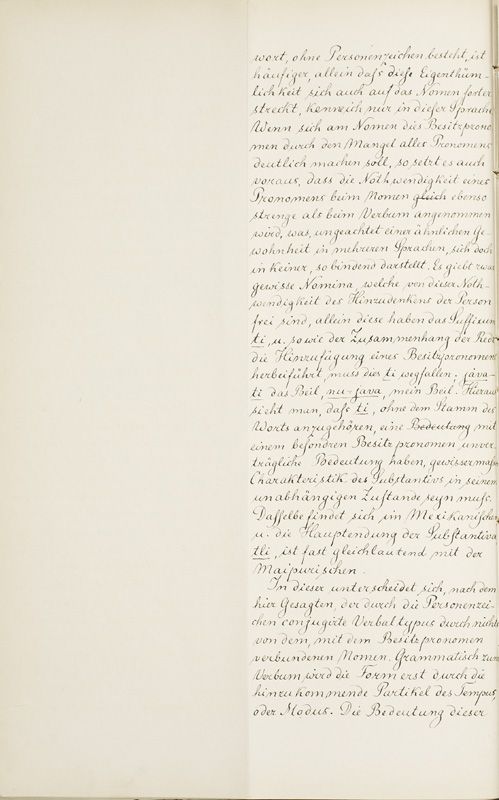 wort, ohne Personenzeichen besteht, ist
häufiger, allein daſs dieſe Eigenthüm-
lichkeit sich auch auf das Nomen forter
streckt, kenne ich nur in dieſer Sprache
Wenn sich am Nomen dies Besitzprono
men durch den Mangel alles Pronomens
deutlich machen soll, so setzt es auch
voraus, dass die Nothwendigkeit eines
Pronomens beim Nomen gleich ebenso
strenge als beim Verbum angenommen
wird, was, ungeachtet einer ähnlichen Ge-
wohnheit in mehreren Sprachen, sich doch
in keiner, so bindend darstellt. Es giebt zwar
gewisse Nomina, welche von dieser Noth-
wendigkeit des Hinzudenkens der Person
frei sind, allein diese haben das Suffixum
ti, u. so wie der Zusammenhang der Rede
die Hinzufügung eines Besitzpronomens
herbeiführt, muss dies ti wegfallen. java-
ti das Beil, nu-java, mein Beil. Hieraus
sieht man, daſs ti, ohne dem Stamm des
Worts anzugehören, eine Bedeutung mit
einem beſondren Besitzpronomen unver-
trägliche Bedeutung haben, gewissermaſsen
Charakteristik des Substantivs in seinem
unabhängigen Zuſtande seyn muſs.
Daſſelbe findet sich im Mexikaniſchen
u. die Hauptendung der Subſtantiva
tli, ist fast gleichlautend mit der
Maipurischen.
In dieser unterscheidet sich, nach dem
hier Gesagten, der durch die Personenzei-
chen conjugirte Verbaltypus durch nichts
von dem, mit dem Besitzpronomen
verbundenen Nomen. Grammatisch zum
Verbum wird die Form erst durch die
hinzukommende Partikel des Tempus,
oder Modus. Die Bedeutung dieser